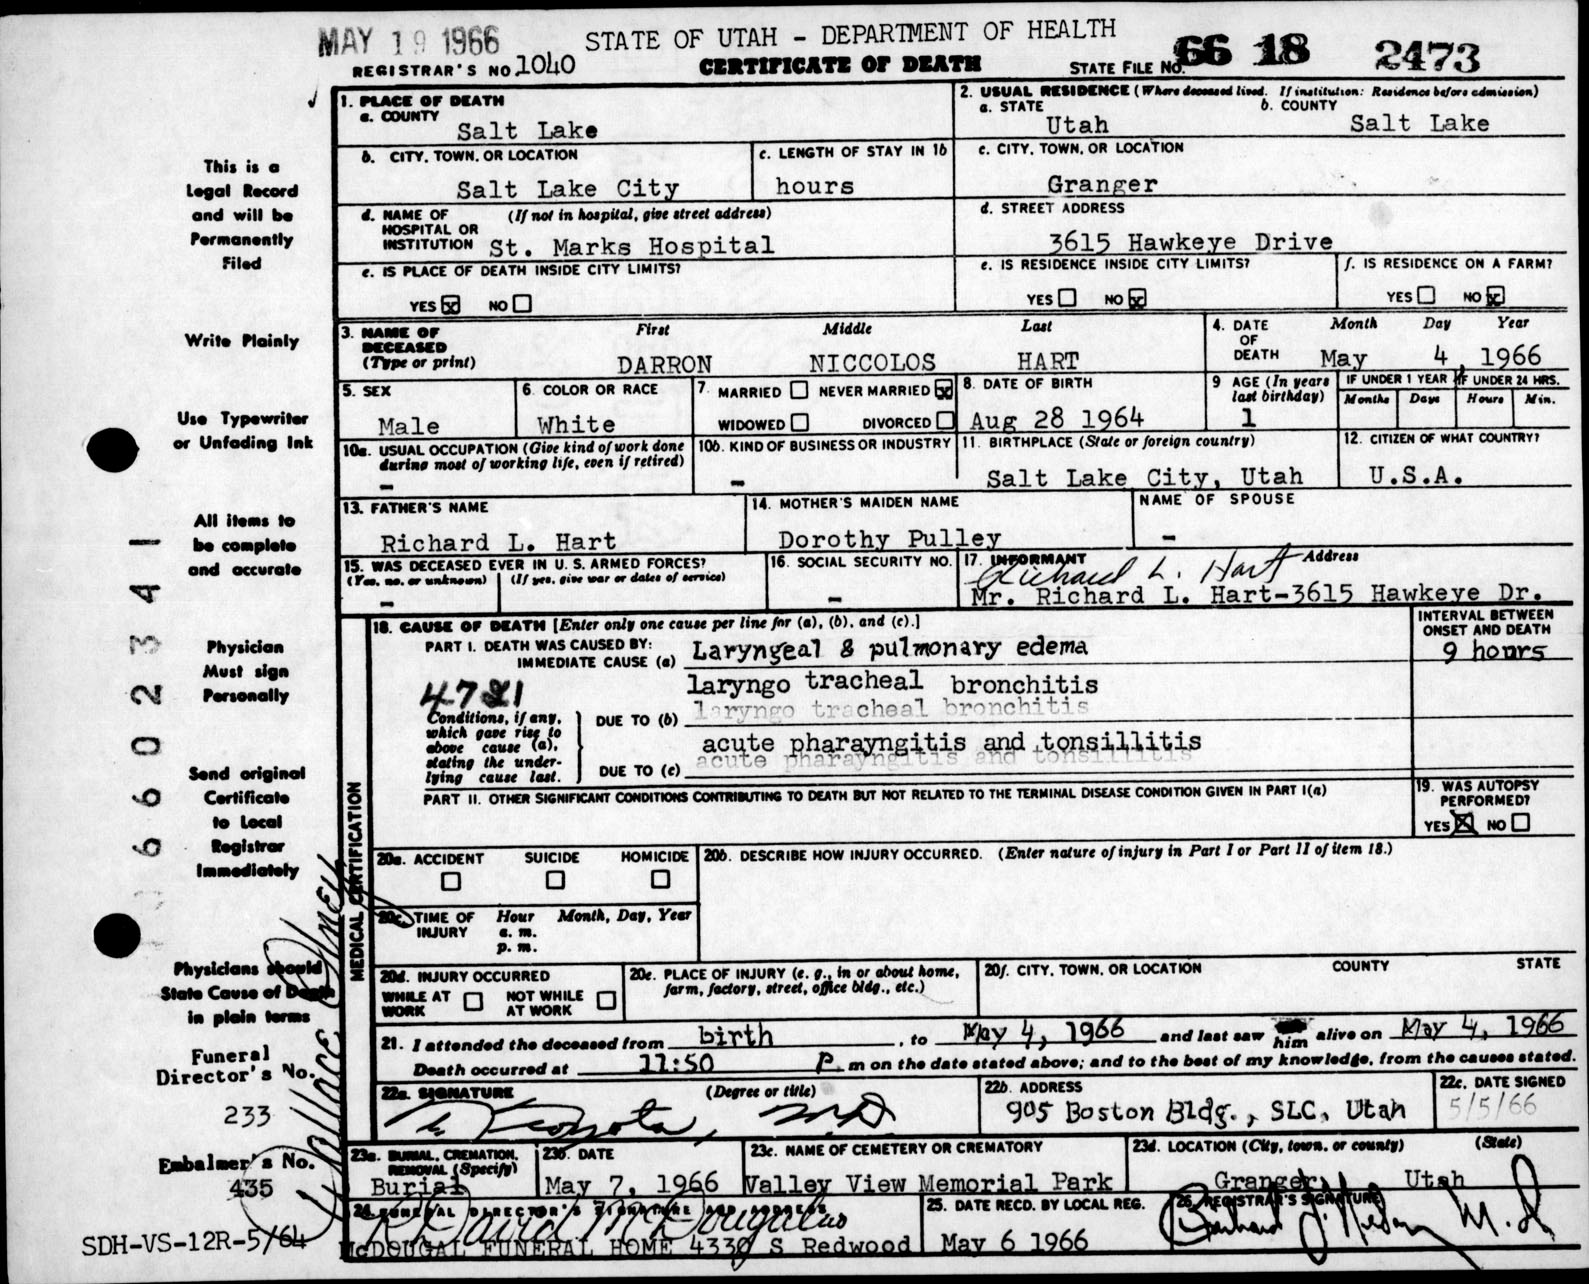 MAY 19 1966
STATE OF UTAH - DEPARTMENT OF HEALTH
REGISTRAR'S NO. 1040
CERTIFICATE OF DEATH
STATE FILE NO. 66 18 2473
1. PLACE OF DEATH
a. COUNTY
Salt Lake
2. USUAL RESIDENCE (Where deceased lived. If institution: Residence before admission)
a. STATE
Utah
b. COUNTY
Salt Lake
b. CITY, TOWN, OR LOCATION
Salt Lake City
c. LENGTH OF STAY IN 1b
hours
c. CITY, TOWN, OR LOCATION
Granger
d. NAME OF HOSPITAL OR INSTITUTION (If not in hospital, give street address)
St. Marks Hospital
d. STREET ADDRESS
3615 Hawkeye Drive
e. IS PLACE OF DEATH INSIDE CITY LIMITS?
YES x NO
e. IS RESIDENCE INSIDE CITY LIMITS?
YES NO x
f. IS RESIDENCE ON A FARM?
YES NO x
3. NAME OF DECEASED (Type or print)
First Middle Last
DARRON NICCOLOS HART
4. DATE OF DEATH
Month Day Year
May 4, 1966
5. SEX
Male
6. COLOR OR RACE
White
7. MARRIED NEVER MARRIED x
WIDOWED DIVORCED
8. DATE OF BIRTH
Aug 28 1964
9 AGE (In years last birthday)
1
IF UNDER 1 YEAR
Months Days
IF UNDER 24 HRS.
Hours Min.
10a. USUAL OCCUPATION (Give kind of work done during most of working life, even if retired)
-
10b. KIND OF BUSINESS OR INDUSTRY
-
11. BIRTHPLACE (State or foreign country)
Salt Lake City, Utah
12. CITIZEN OF WHAT COUNTRY?
U.S.A.
13. FATHER'S NAME
Richard L. Hart
14. MOTHER'S MAIDEN NAME
Dorothy Pulley
NAME OF SPOUSE
-
15. WAS DECEASED EVER IN U. S. ARMED FORCES?
(Yes, no, or unknown) (If yes, give war or dates of service)
-
16. SOCIAL SECURITY NO.
-
17. INFORMANT Address
Richard L. Hart
Mr. Richard L. Hart-3615 Hawkeye Dr.
MEDICAL CERTIFICATION
18. CAUSE OF DEATH [Enter only one cause per line for (a), (b), and (c).]
INTERVAL BETWEEN ONSET AND DEATH
PART I. DEATH WAS CAUSED BY:
IMMEDIATE CAUSE (a) Laryngeal & pulmonary edema
9 hours
laryngo tracheal bronchitis
Conditions, if any, which gave rise to above cause (a), stating the underlying cause last.
DUE TO (b) laryngo tracheal bronchitis
acute pharayngitis and tonsillitis
DUE TO (c) acute pharayngitis and tonsillitis
PART II. OTHER SIGNIFICANT CONDITIONS CONTRIBUTING TO DEATH BUT NOT RELATED TO THE TERMINAL DISEASE CONDITION GIVEN IN PART I(a)
19. WAS AUTOPSY PERFORMED?
YES X NO
20a. ACCIDENT SUICIDE HOMICIDE
20b. DESCRIBE HOW INJURY OCCURRED. (Enter nature of injury in Part I or Part II of item 18.)
20c. TIME OF INJURY
Hour Month, Day, Year
a. m.
p. m.
20d. INJURY OCCURRED
WHILE AT WORK NOT WHILE AT WORK
20e. PLACE OF INJURY (e. g., in or about home, farm, factory, street, office bldg., etc.)
20f. CITY, TOWN, OR LOCATION COUNTY STATE
21. I attended the deceased from birth, to May 4, 1966 and last saw him alive on May 4, 1966
Death occurred at 11:50 P. m on the date stated above; and to the best of my knowledge, from the causes stated.
22a. SIGNATURE (Degree or title)
M.D
22b. ADDRESS
905 Boston Bldg., SLC, Utah
22c. DATE SIGNED
5/5/66
23a. BURIAL, CREMATION, REMOVAL (Specify)
Burial
23b. DATE
May 7, 1966
23c. NAME OF CEMETERY OR CREMATORY
Valley View Memorial Park
23d. LOCATION (City, town, or county) (State)
Granger, Utah
24. FUNERAL DIRECTOR'S SIGNATURE AND ADDRESS
R David McDougal
McDOUGAL FUNERAL HOME 4330 S Redwood
25. DATE RECD. BY LOCAL REG.
May 6 1966
26. REGISTRAR'S SIGNATURE
M.D
This is a
Legal Record
and will be
Permanently
Filed
Write Plainly
Use Typewriter
or Unfading Ink
All items to
be complete
and accurate
Physician
Must sign
Personally
Send original
Certificate
to Local
Registrar
Immediately
Physicians should
State Cause of Death
in plain terms
Funeral
Director's No.
233
Embalmer's No.
435
SDH-VS-12R-5/64
6602341